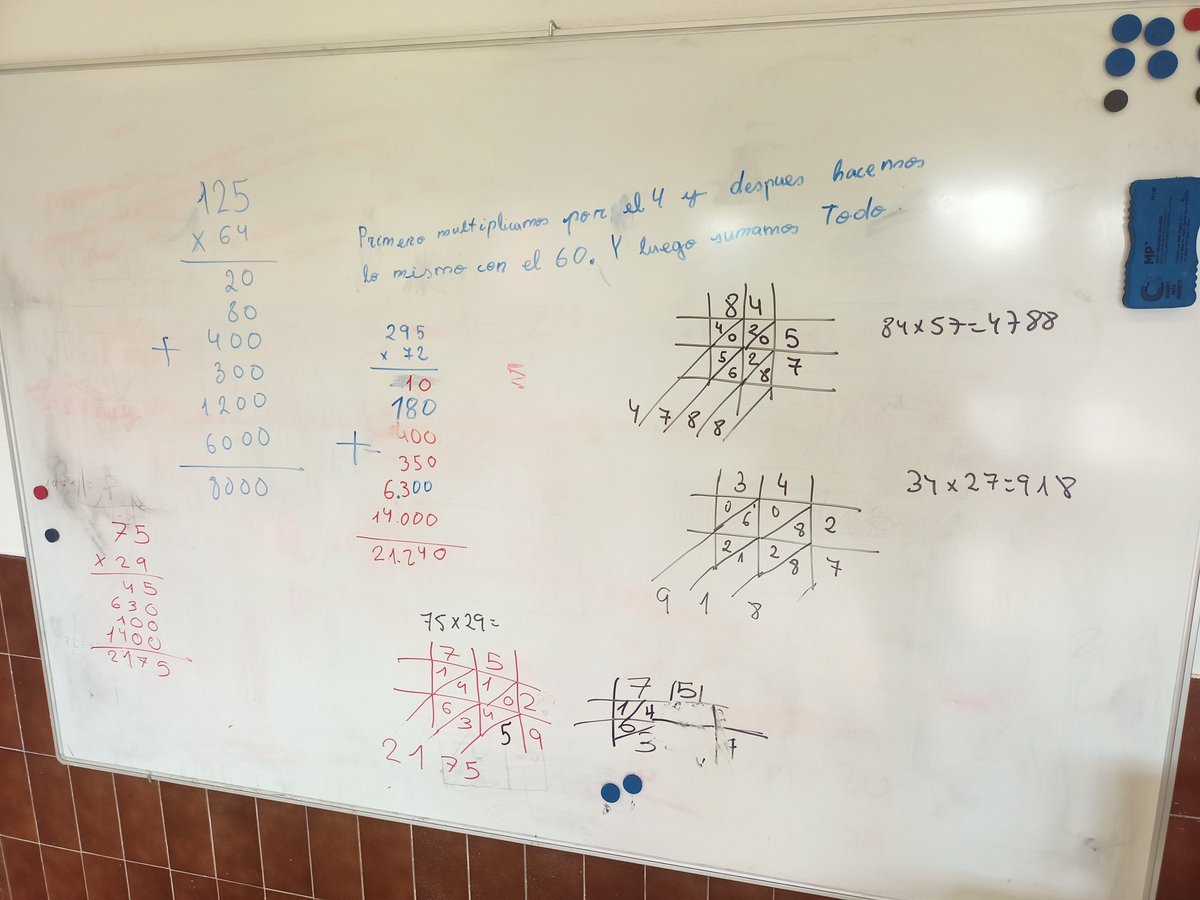 125
x 64
20
80
+ 400
300
1200
6000
8000
Primero multiplicamos por el 4 y despues hacemos
lo mismo con el 60. Y luego sumamos Todo.
295
x 72
10
180
+ 400
350
6.300
14.000
21.240
75
x 29
45
630
100
1400
2175
8 4
4 0 2 0 5
5 6 2 8 7
4 7 8 8
84x57=4788
3 4
0 6 0 8 2
2 1 2 8 7
9 1 8
34x27=918
75x29=
7 5
1 4 1 0 2
6 3 4 5 9
2 1 7 5
7 5
1 4
6
MP